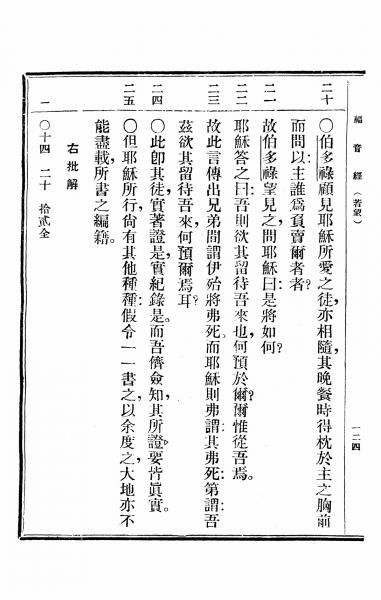 福音經（若望）
一二四
二十　○伯多祿顧見耶穌所愛之徒亦相隨，其晚餐時得枕於主之胸前
而問以主誰爲負賣爾者者？
二一　故伯多祿望見之問耶穌曰：是將如何？
二二　耶穌答之曰：吾則欲其留待吾來也，何預於爾？爾惟從吾焉。
二三　故此言傳出兄弟間，謂伊殆將弗死。而耶穌則弗謂：其弗死：第謂：吾
茲欲其留待吾來，何預爾焉耳？
二四　○此卽其徒，實著證是，實紀錄是。而吾儕僉知，其所證，要皆眞實。
二五　○但耶穌所行，尙有其他種種，假令一一書之，以余度之，大地亦不
能盡載所書之編籍。
右批解
一　○十四　二十　拾貳全